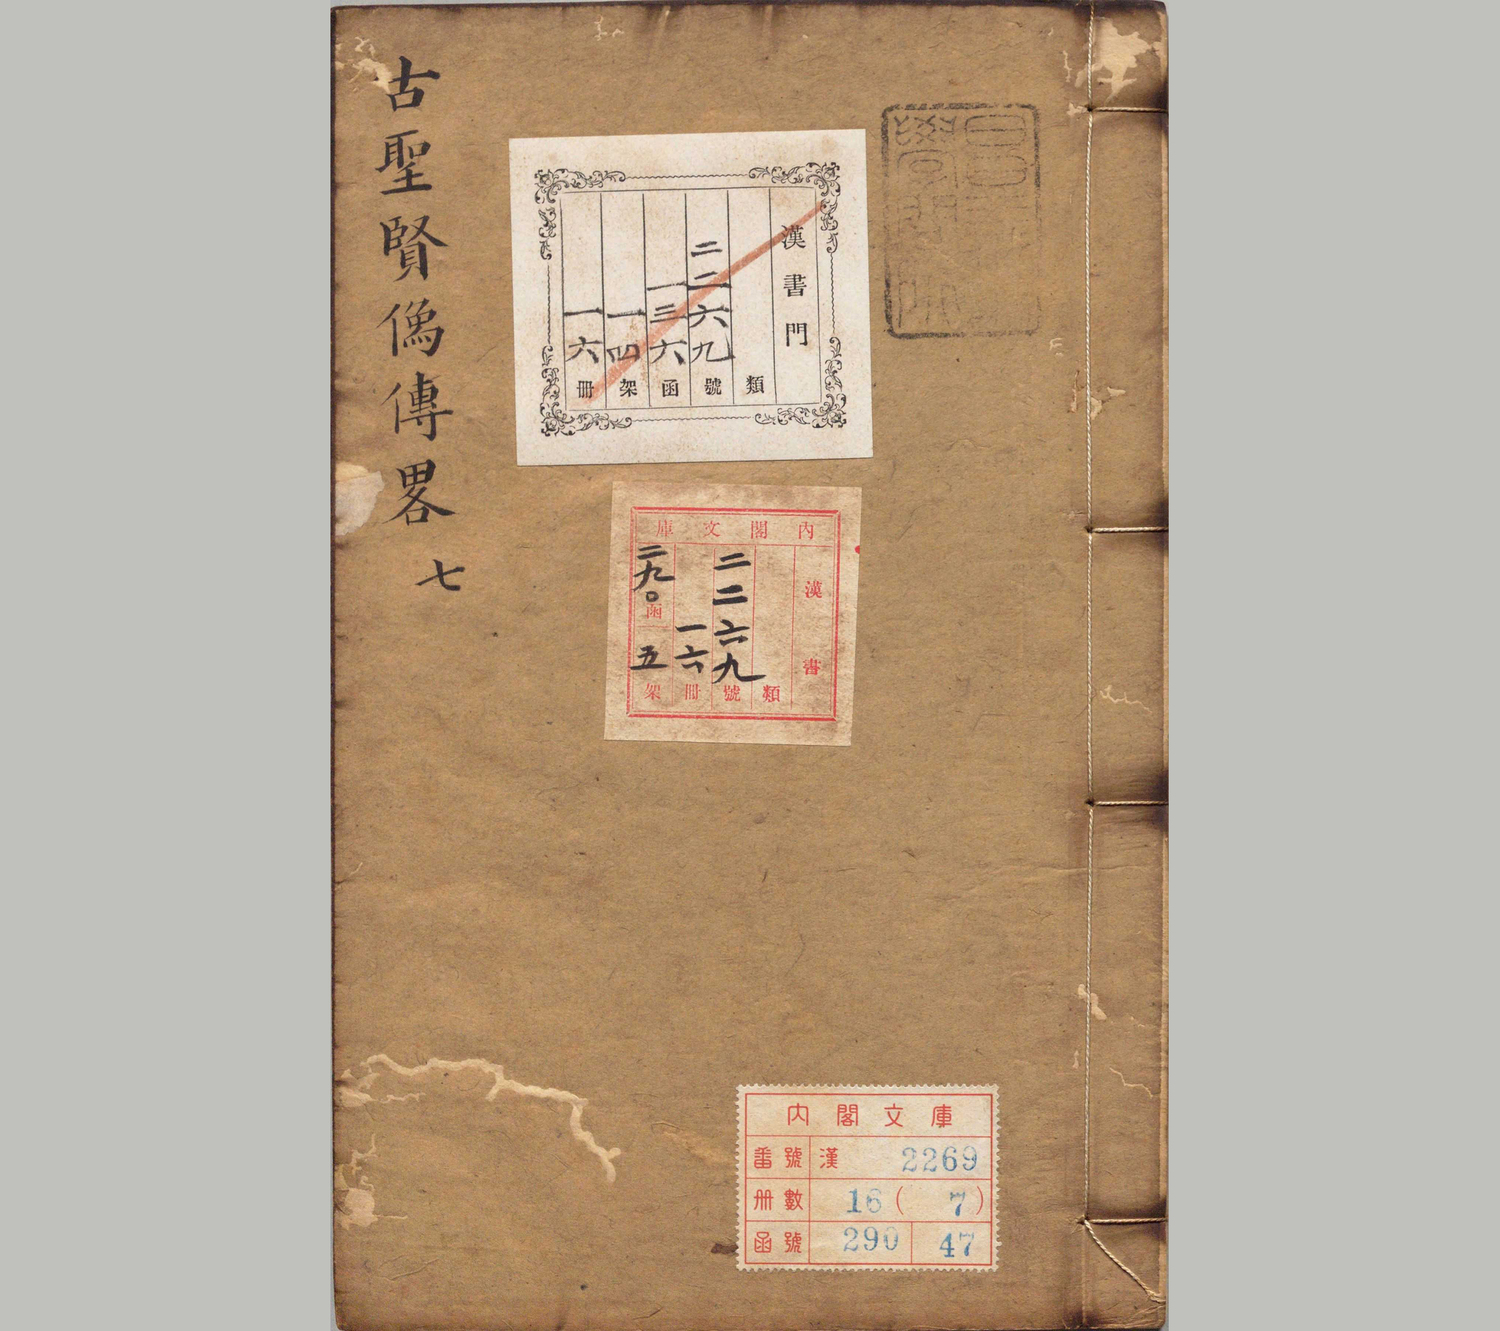 昌平坂
學問所
古聖賢像傳畧 七
漢書門
類
二二六九號
一三六函
一四架
一六冊
內閣文庫
漢書
類
二二六九號
一六冊
二九〇函
五架
内閣文庫
番號 漢 2269
冊數 16 ( 7 )
函號 290 47